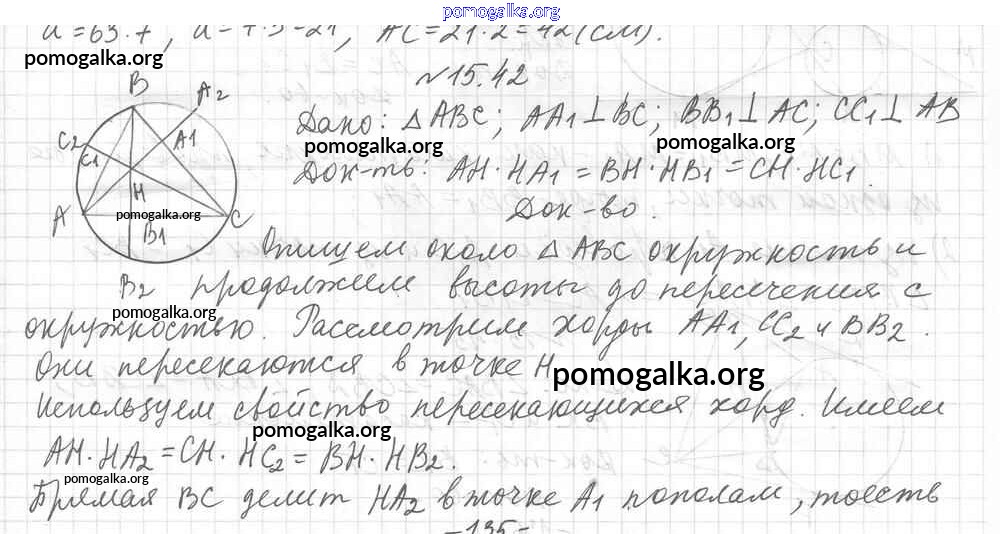 pomogalka.org
a = 63:7, a = 7·3=21, AC = 21·2=42 (см).
pomogalka.org
№15.42
B
A2
Дано: △ABC; AA1⊥BC; BB1⊥AC; CC1⊥AB
C2
C1
A1
pomogalka.org
pomogalka.org
Док-ть: AH·HA1 = BH·HB1 = CH·HC1.
H
A
pomogalka.org
C
Док-во.
B1
Опишем около △ABC окружность и
B2
продолжем высоты до пересечения с
pomogalka.org
окружностью. Рассмотрим хорды AA1, CC2 и BB2.
Они пересекаются в точке H
pomogalka.org
Используем свойство пересекающихся хорд. Имеем
pomogalka.org
AH·HA2 = CH·HC2 = BH·HB2.
pomogalka.org
Прямая BC делит HA2 в точке A1 пополам, тоесть
-135-